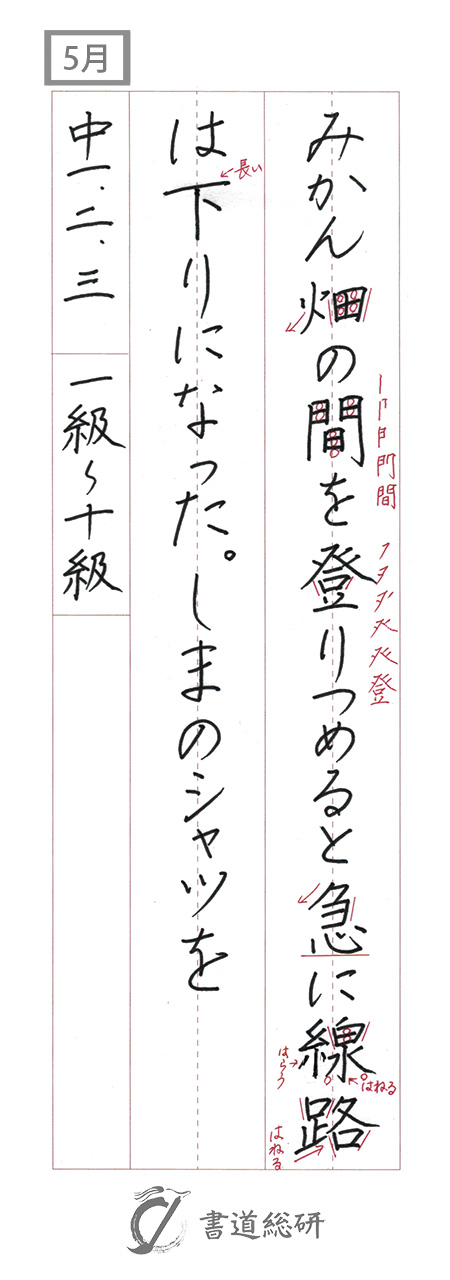 5月
みかん畑の間を登りつめると急に線路
は下りになった。しまのシャツを
中一、二、三 一級〜十級
長い
間
登
はらう
はねる
はねる
書道総研